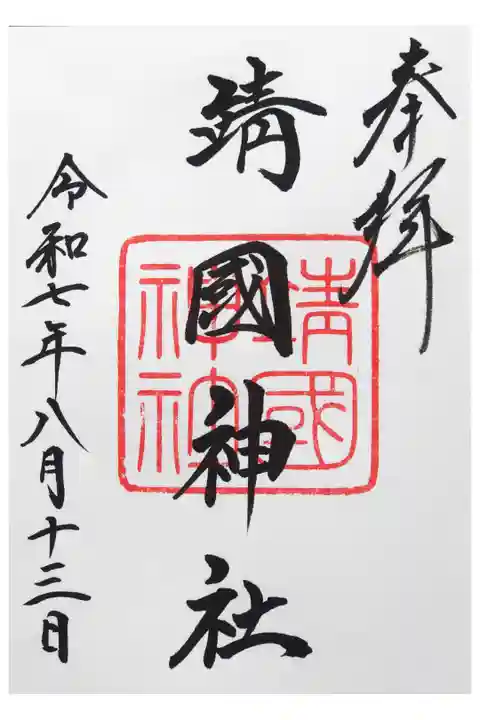 奉拝
錆國神社
令和七年八月十三日
靖國
神社